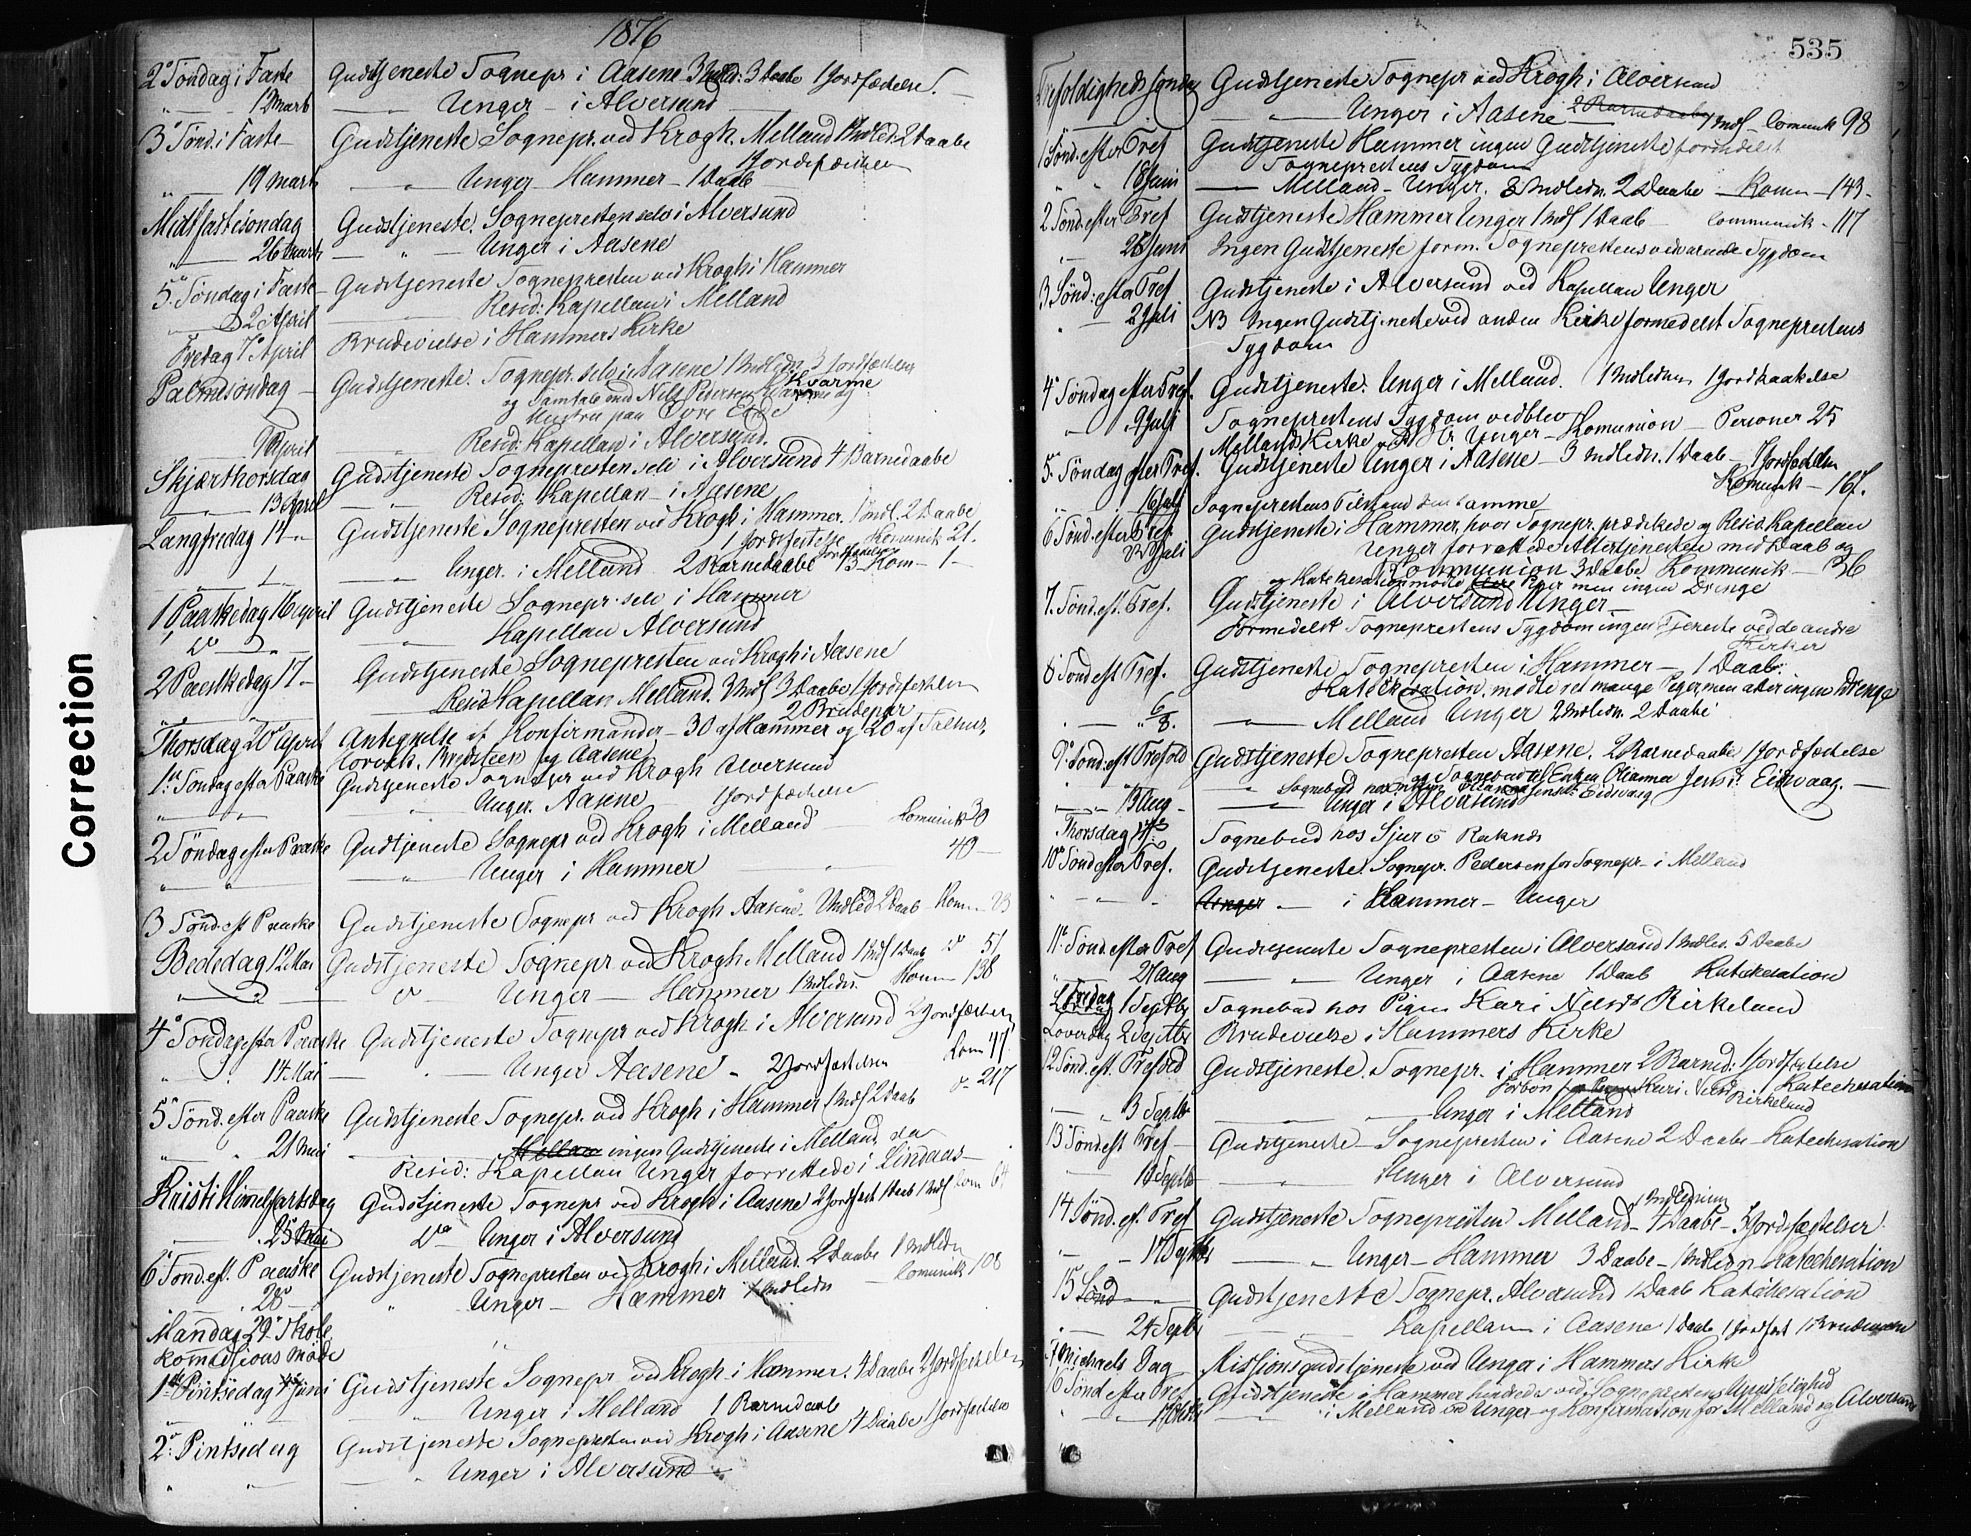 1876
2° Søndag i Faste Gudstjeneste Sognepr i Aasene 3 Indl: 3 Daabe 1 Jordfæstelse.
12 Marts Unger i Alversund
3° Sønd. i Faste Gudstjeneste Sognepr. ved Krogh. Melland 1 Indled. 2 Daabe
1 Jordfæstelse
19 Marts Unger Hammer 1 Daab
Midtfastesøndag Gudstjeneste. Sognepresten selv i Alversund
26 Marts Unger i Aasene
5. Søndag i Faste Gudstjeneste Sognepresten ved Krogh i Hammer
2 April Resid: Kapellan i Melland
Fredag 7° April Brudevielse i Hammers Kirke
Palmesøndag Gudstjeneste. Sognepr. selv i Aasene 1 Indledn. 3 Jordfæstelser
og Samtale med Nils Petersen Kvarme og
Hustru paa Eide
9 April Resid: Kapellan i Alversund.
Skjærthorsdag Gudstjeneste Sognepresten selv i Alversund 4 Barnedaabe
13 April Resid: Kapellan i Aasene
Langfredag 14 Gudstjeneste Sognepresten ved Krogh i Hammer. 1 Indl. 2 Daabe
1 Jordfestelse Komunik 21.
Unger. i Melland 2 Barnedaabe Kom 1
1 Paaskedag 16 April Gudstjeneste Sognepr. selv i Hammer
Kapellan Alversund
2 Paaskedag 17 Gudstjeneste Sognepresten ved Krogh i Aasene
Resid Kapellan Melland. 3 Indl 3 Daabe 1 Jordfestelse
2 Brudepar
Thorsdag 20° April Antegnelse af Konfirmander 30 af Hammer og 20 af
og Aasene
1ste Søndag efter Paaske Gudstjeneste Sognepr ved Krogh Alversund
Unger. Aasene 1 Jordfæstelse
2 Søndag efter Paaske Gudstjeneste Sognepr ved Krogh i Melland Komunik 30
Unger i Hammer 40
3 Sønd. eft Paaske Gudstjeneste Sognepr ved Krogh Aasene. 1 Indled 2 Daab Kom 23
Bededag 12 Mai Gudstjeneste Sognepr ved Krogh Melland 1 Indl 1 Daab 51
Unger Hammer 1 Indledn. Kom 138
4° Søndag efter Paaske Gudstjeneste Sognepr ved Krogh i Alversund 2 Jordfæstelser
Kom 47
14 Mai Unger Aasene 2 Jordfæstelser 217
5° Sønd. efter Paaske Gudstjeneste Sognepr. ved Krogh i Hammer 1 Indl 2 Daab
21 Mai ingen Gudstjeneste i Melland da
Resid: Kapellan Unger forrettede i Lindaas
Kristi Himmelfartsdag Gudstjeneste Sognepr ved Krogh i Aasene 2 Jordfæst 1 Daab 1 Indl Kom 64
25 Mai Do Unger i Alversund
6° Sønd. eft. Paaske Gudstjeneste Sognepresten ved Krogh i Melland 2 Daabe 1 Indledn
28 Unger Hammer 1 Indledn Comunik 108
Mandag 29° Skole
kommissions møde
1ste Pintsedag 4 Juni Gudstjeneste Sognepr ved Krogh i Hammer. 4 Daabe 2 Jordfestelser
Unger i Melland 1 Barnedaab
2: Pintsedag Gudstjeneste Sognepresten ved Krogh i Aasene 4 Daabe 1 Jordfæstelse
Unger i Alversund
535
Trefoldighedssøndag Gudstjeneste Sognepr ved Krogh i Alversund
Unger i Aasene 2 Barnedaabe 1 Indl Comunik 98
1 Sønd. efter Tref Gudstjeneste Hammer ingen Gudstjeneste formedelst
Sogneprestens Sygdom
18 Juni Melland Unger. 3 Indledn. 2 Daabe Komm 143
2. Sønd. efter Tref Gudstjeneste Hammer Unger 1 Indl 1 Daab Communik 117
25 Juni Ingen Gudstjeneste form. Sogneprestens vedvarende Sygdom
3 Sønd: efter Tref Gudstjeneste i Alversund ved Kapellan Unger
2 Juli NB Ingen Gudstjeneste ved anden Kirke formedelst Sogneprestens
Sygdom
4 Søndag efter Tref. Gudstjeneste. Unger i Melland. 1 Indledn 1 Jordpaakastelse
9 Juli Sogneprestens Sygdom vedblev
Mellands Kirke Unger Komunion Personer 25
5 Søndag efter Tref. Gudstjeneste Unger i Aasene 3 Indledn. 1 Daab 1 Jordfæstelse
Komunik 167.
16 Juli Sogneprestens Tilstand den samme
6 Sønd. efter Tref Gudstjeneste i Hammer, hvor Sognepr. prædikede og Resid Kapellan
23 Juli Unger forrettede Altertjenesten med Daab og
Communion 3 Daabe Kommunik 36
og Katekesation mødte Piger men ingen Drenge
7. Sønd. eft. Tref. Gudstjeneste i Alversund Unger
Formedelst Sogneprestens Sygdom ingen Tjeneste ved de andre
Kirker
8 Sønd eft Tref. Gudstjeneste Sognepresten i Hammer 1 Daab
Katekesation, mødte ret mange Piger, men atter ingen Drenge
6/8. Melland Unger 2 Indledn. 2 Daabe
9° Sønd: eft Trefold Gudstjeneste Sognepresten Aasene. 2 Barnedaabe 1 Jordfæstelse
og Sognebud til Enken Olianna Jensdt. Eidsvaag.
13 Aug Unger i Alversund
Thorsdag 17de Sognebud hos Sjur Raknæs
10° Sønd efter Tref. Gudstjeneste. Sognepr. Pedersen for Sognepr. i Melland
Unger i Hammer Unger
11te Sønd. efter Tref Gudstjeneste Sognepresten i Alversund 1 Indled. 5 Daabe
27 Aug Unger i Aasene 1 Daab Katekesation
Fredag 1 Septbr Sognebud hos Pigen Kari Nilsdr Birkeland
Løverdag 2 Septbr Brudevielse i Hammers Kirke
12 Sønd. eft. Trefold Gudstjeneste. Sognepr. i Hammer 2 Barned: 1 Jordfæstelse
Forbøn for Kari Nilsd Birkeland. Katechesation
3 Septbr Unger i Melland
13 Sønd. eft Tref Gudstjeneste Sognepresten i Aasene 2 Daabe Katechesation
10 Septbr Unger i Alversund
1 Indledning
14 Sønd. ef. Tref Gudstjeneste Sognepresten Melland 4 Daabe 3 Jordfæstelser
17 Septbr Unger Hammer 3 Daabe 1 Indledn Katechesation
15 Sønd Gudstjeneste Sognepr. Alversund 1 Daab Katekesation
24 Septbr Kapellan i Aasene 1 Daab 1 Jordfæst 1 Brudepar
Michaels Dag Missionsgudstjeneste ved Unger i Hammers Kirke
16 Sønd efter Tref Gudstjeneste i Hammer hindredes ved Sogneprestens Upasselighed
1 Oktbr i Melland ved Unger og Konfirmation for Melland og Alversund
Correction